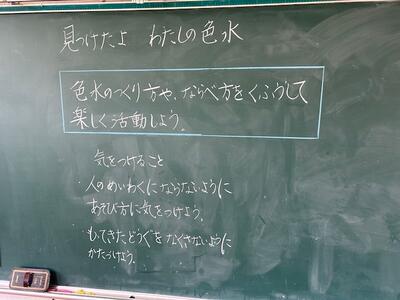 見つけたよ わたしの色水
色水のつくり方や、ならべ方をくふうして
楽しく活動しよう。
気をつけること
・人のめいわくにならないように
あそび方に気をつけよう。
・もってきたどうぐをなくさないように
かたづけよう。